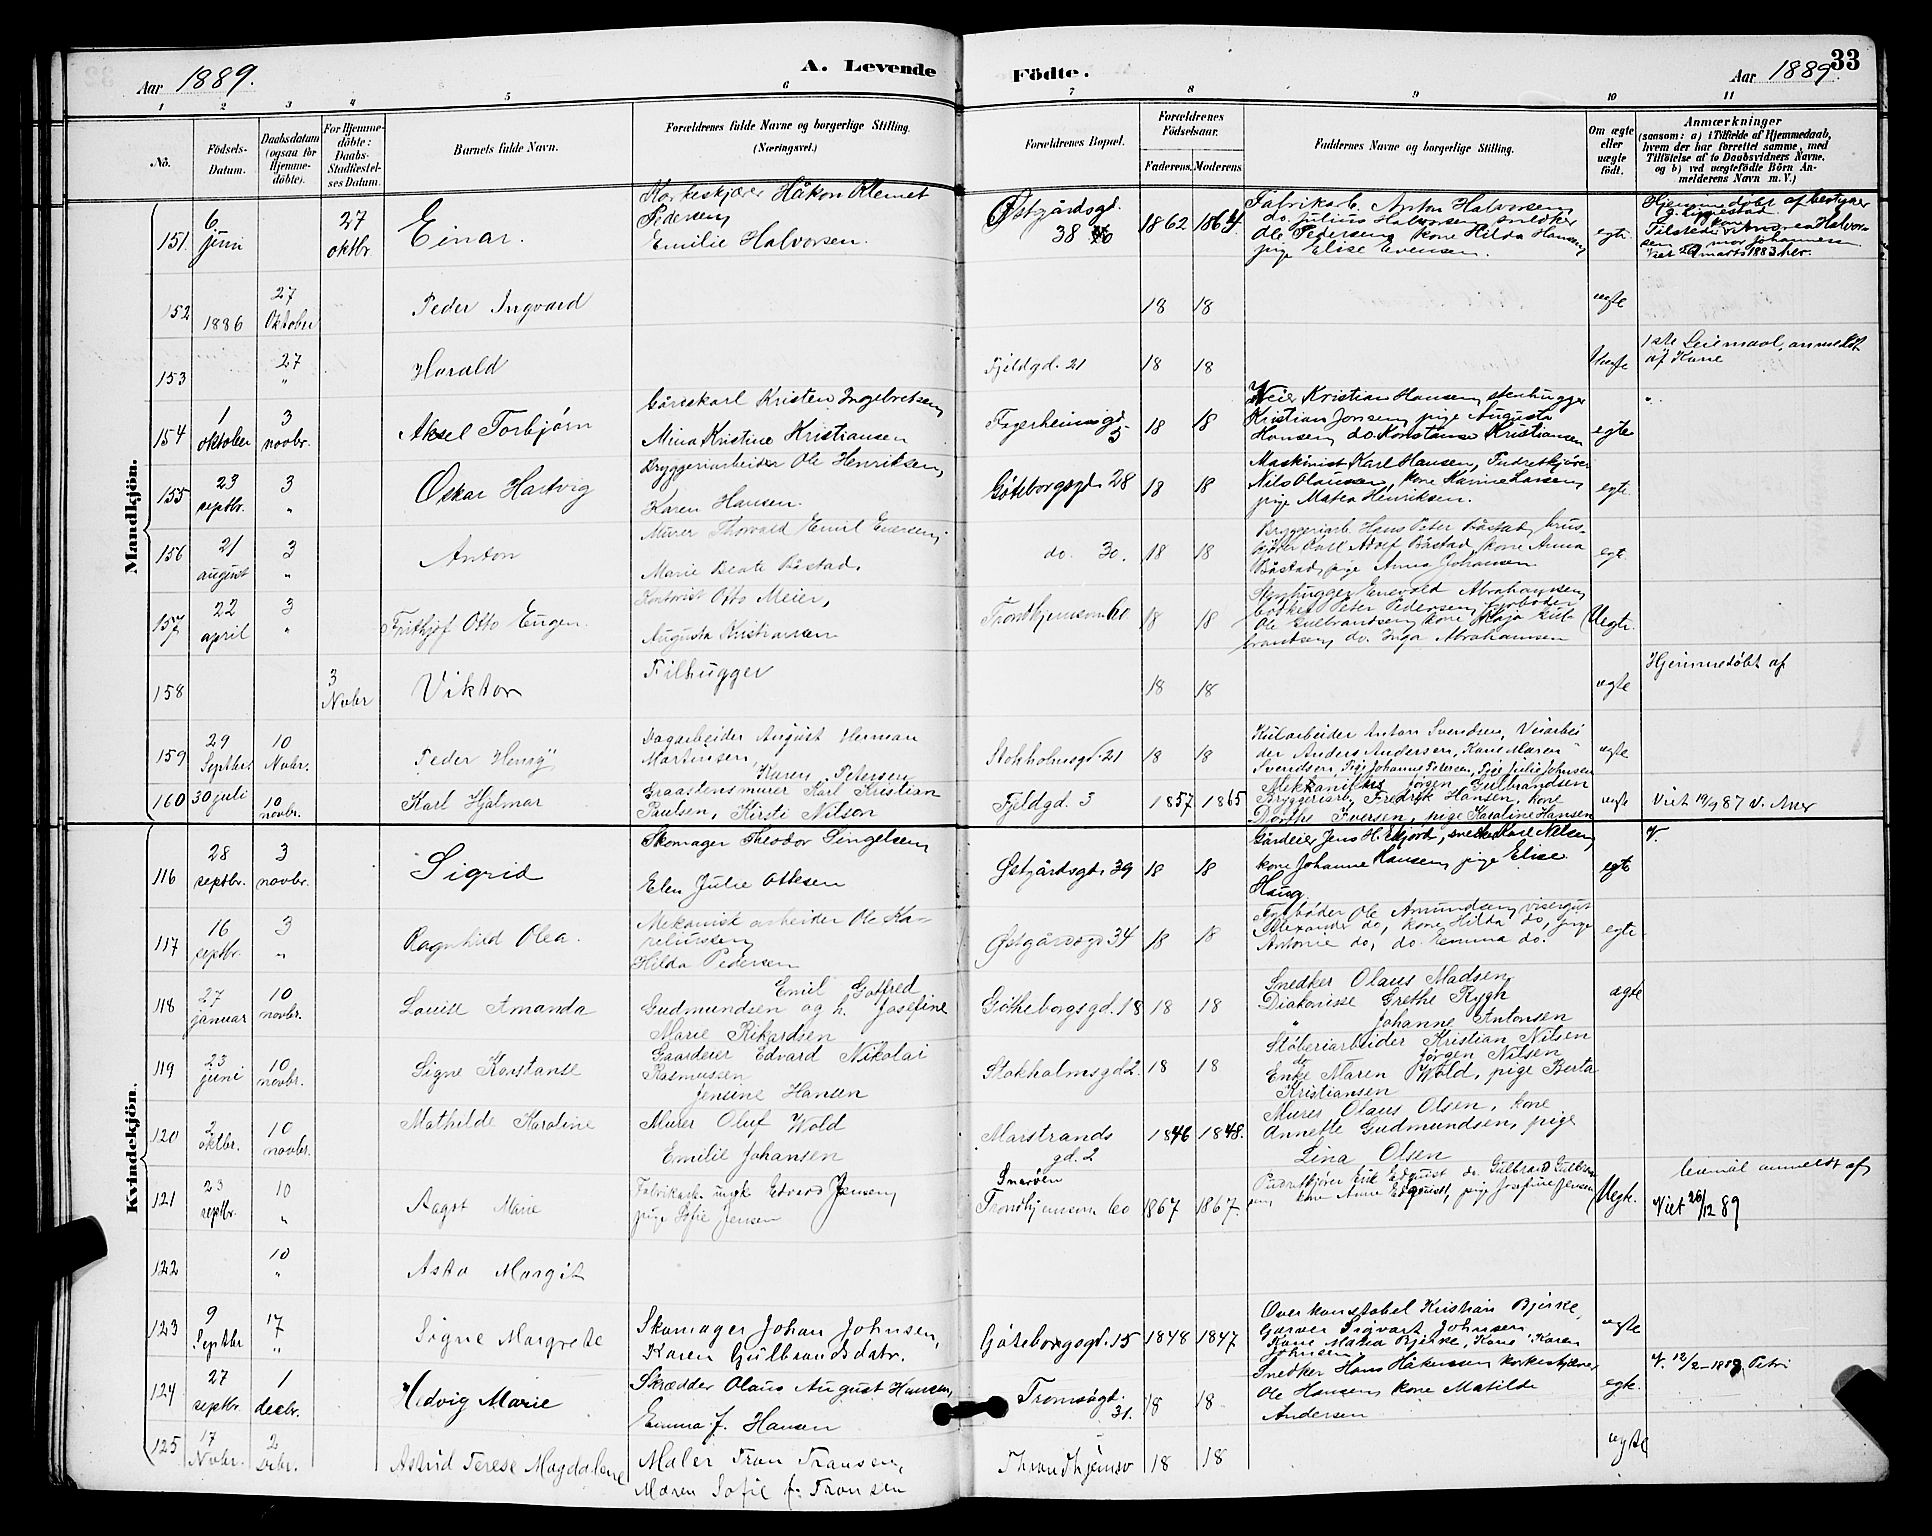 Aar 1889.
A. Levende
Födte.
Aar 1889.
33
1 2 3 4 5 6 7 8 8 9 10 11
Nö.
Födsels-
Datum.
Daabsdatum
(ogsaa för
Hjemme-
döbte).
For Hjemme-
döbte:
Daabs-
Stadfæstel-
ses Datum.
Barnets fulde Navn.
Forældrenes fulde Navne og borgerlige Stilling.
(Næringsvei.)
Forældrenes Bopæl.
Forældrenes
Födselsaar.
Faderens. Moderens.
Faddernes Navne og borgerlige Stilling.
Om ægte
eller
uægte
födt.
Anmærkninger
(saasom: a) i Tilfælde af Hjemmedaab,
hvem der har forrettet samme, med
Tilföielse af to Daabsvidners Navne,
og b) ved uægtefödte Börn An-
melderens Navn m. V.)
Mandkjön.
151
6
juni
27
oktbr
Einar.
Korkeskjærer Håkon Klemet
Pedersen,
Emilie Halvorsen.
Østgårdsgd.
38
1862 1864
Fabrikarb. Anton Halvorsen,
do. Julius Halvorsen snedker
Ole Pedersen, kone Hilda Hansen,
pige Elise Evensen.
egte.
Hjemmedøbt af bestyrer
Viet 29 marts 1883 her.
152
1886
27
Oktober
Peder Ingvard
18 18
ægte
153
27
"
Harald
Fjeldgd. 21
18 18
Uægte
1ste Leiemaal, anmeldt
af Kone
154
1
oktober
3
novbr.
Aksel Torbjørn
Gårdskarl Kristen Ingebretsen,
Mina Kristine Kristiansen
Fagerheimsgd.
5
18 18
Veier Kristian Hansen, stenhugger
Kristian Jonsen, pige Augusta
Hansen, do. Konstanse Kristiansen
egte
155
23
septbr.
3
"
Oskar Hartvig
Bryggeriarbeider Ole Henriksen,
Karen Hansen.
Göteborgsgd. 28
18 18
Maskinist Karl Hansen, Pudretkjører
Nils Olaussen, kone Karine Larsen,
pige Matea Henriksen.
egte.
156
21
august
3
"
Anton
Murer Thorvald Emil Eversen,
Marie Beate Båstad,
do. 30.
18 18
Bryggeriarb. Hans Peter Båstad, brus-
kjører Karl Adolf Båstad, kone Anna
Båstad, pige Anna Johansen
egt.
157
22
april
3
"
Frithjof Otto Eugen.
Kontorist Otto Meier,
Augusta Kristiansen
Trondhjemsvn 60
18 18
Stenhugger Enevold Abrahamsen,
bødker Peter Pedersen, fyrbøder
Ole Gulbrandsen, kone Kaja Gul-
brandsen, do. Inga Abrahamsen
Uegte.
158
3
Novbr
Viktor
Filhugger
18 18
ægte
Hjemmedøbt af
159
29
Septbr.
10
Novbr.
Peder Henry
Dagarbeider August Herman
Martinsen,
Karen Petersen
Stokholmsgd. 21
18 18
Kularbeider Anton Svendsen, Veiarbei
der Anders Andersen, Kone Maren
Svendsen, Pige Johanne Petersen, Pige Julie Johnsen
ægte
160
30 juli
10
novbr.
Karl Hjalmar
Graastensmurer Karl Kristian
Paulsen, Kirsti Nilson
Fjeldgd. 3
1857 1865
Mekkaniker Jørgen Gulbrandsen
Bryggeriarb. Fredrik Hansen, kone
Dorthe Iversen, pige Karoline Hansen
ægte
Viet 19/9 87 v. Aker
Kvindekjön.
116
28
septbr.
3
novbr.
Sigrid
Skomager Theodor Pingelsen,
Elen Julie Ottesen
Østgårdsgd. 39
18 18
Gårdeier Jens H. Ekjord, snedker Karl Nelsen,
kone Johanne Hansen, pige Elise
Haug
egte
V.
117
16
septbr.
3
"
Ragnhild Olea.
Mekanisk arbeider Ole Ka-
reliussen,
Hilda Pedersen
Østgårdsgd 34
18 18
Fyrbøder Ole Amundsen, visergut
Alexander do, kone Hilda do, pige
Antonie do, do. Emma do.
egte.
118
27
januar
10
novbr.
Louise Amanda
Emil Gotfred
Gudmundsen og h. Josefine
Marie Rikardsen
Götheborgsgd. 18
18 18
Snedker Olaus Madsen,
Diakonisse Grethe Rygh
" Johanne Antonsen
ægte
119
23
juni
10
novbr.
Signe Konstanse
Gaardeier Edvard Nikolai
Rasmussen
Jensine Hansen
Stokholmsgd 2.
18 18
Støberiarbeider Kristian Nilsen
do Jørgen Nilsen
Enke Maren Wold, pige Berta
Kristiansen
120
2
oktbr.
10
novbr.
Mathilde Karoline
Murer Oluf Wold
Emilie Johansen
Marstrands
gd. 2
1846 1848.
Murer Olaus Olsen, kone
Annette Gudmundsen, pige
Lina Olsen
121
23
septbr.
10
"
Aagot Marie
Fabrikarb. ungk Edvard Jensen,
pige Sofie Jensen
Snarøen
Trondhjemsvn 60
1867 1867.
Pudretkjører Erik Edquist do. Gulbrand Gulbran
sen, kone Anne Edquist, pige Josefine Jensen
Uegte.
leiemål anmeldt af
Viet 26/12 89
122
10
"
Asta Margit
123
9
Septbr
17
"
Signe Margrete
Skomager Johan Johnsen,
Karen Gulbrandsdatr.
Göteborgsgd. 15
1848 1847
Overkonstabel Kristian Bjerke,
Garver Sigvart Johnsen
Kone Maria Bjerke, Kone Karen
Johnsen
ægte
124
27
septbr.
1
decbr.
Hedvig Marie
Skrædder Olaus August Hansen,
Emma f. Hansen
Tromsøgd.
31.
18 18.
Snedker Hans Håkensen, korkeskjærer
Ole Hansen, kone Matilde
Andersen
egte.
V. 12/2-1889 Petri
125
17
Novbr.
2
Debr.
Astrid Terese Magdalene
Maler Tron Transen,
Maren Sofie f. Tronsen
Throndhjemsv
18 18
ægte